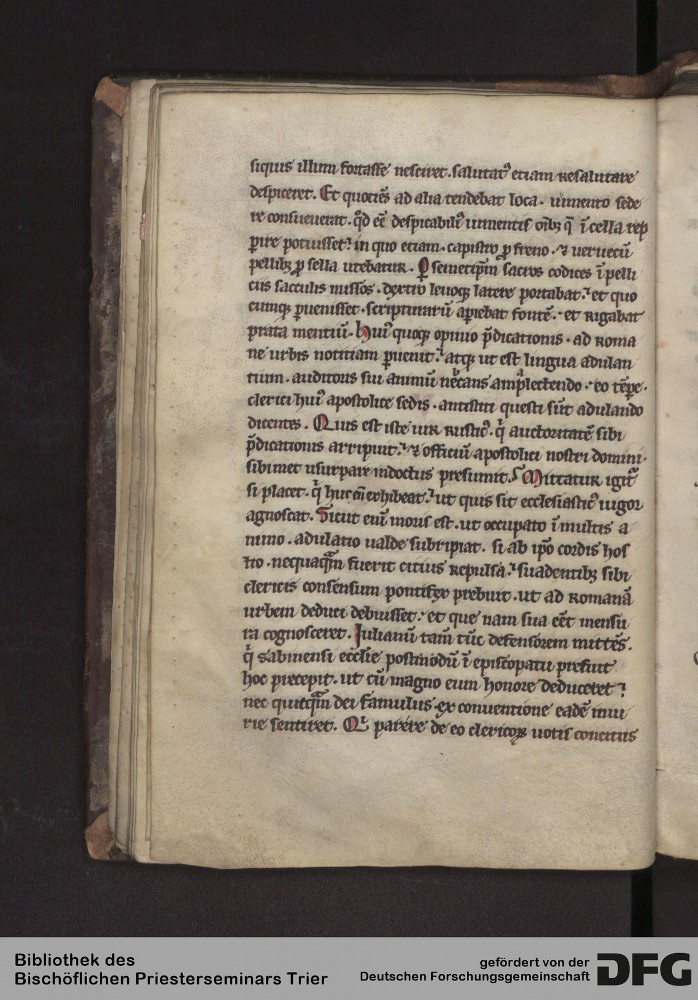 siquis illum fortasse nesciret. salutatꝰ etiam resalutare
despiceret. Et quociēs ad alia tendebat loca. iumento sede
re consueuerat. qd̄ eē despicabiliꝰ iumentis oībꝫ q̄ ī cella rep
ꝑire potuisset: in quo etiam. capistro ꝓ freno. ⁊ ueruecū
pellibꝫ ꝓ sella utebatur. Ꝑ semetip̄m sacros codices ī pelli
ciis sacculis missos. dextro leuoqꝫ latere portabat: et quo
cumqꝫ ꝑuenisset. scripturarū aꝑiebat fontē. et rigabat
prata mentiū. huiꝰ quoqꝫ opinio p̄dicationis. ad roma
ne urbis notitiam ꝑuenit: atqꝫ ut est lingua adulan
tium. auditoris sui animū necans amplectendo. eo tēꝑe.
clerici huiꝰ apostolice sedis. antistiti questi sūt adulando
dicentes. Quis est iste uir rusticꝰ. q̄ auctoritatē sibi
p̄dicationis arripuit: ⁊ officiū apostolici nostri domini.
sibimet usurpare indoctus presumit. Mittatur igit᷑
si placet. q̄ huc eū exhibeat: ut quis sit ecclesiasticꝰ uigor
agnoscat. Sicut eni moris est. ut occupato ī multis a
nimo. adulatio ualde subripiat. si ab ip̄o cordis hos
tio. nequaqͣm fuerit citius repulsa: suadentibꝫ sibi
clericis consensum pontifex prebuit. ut ad romanā
urbem deduci debuisset. et que nam sua eēt mensu
ra cognosceret. Iulianū tam̄ tūc defensorem mittēs.
q̄ sabinensi eccl̄ie postmodū ī episcopatu prefuit
hoc precepit. ut cū magno eum honore deduceret:
nec quicqͣm dei famulus. ex conuentione eadē iniu
rie sentiret. Qi parere de eo clericoꝝ uotis concitus
Bibliothek des
Bischöflichen Priesterseminars Trier
gefördert von der
Deutschen Forschungsgemeinschaft
DFG